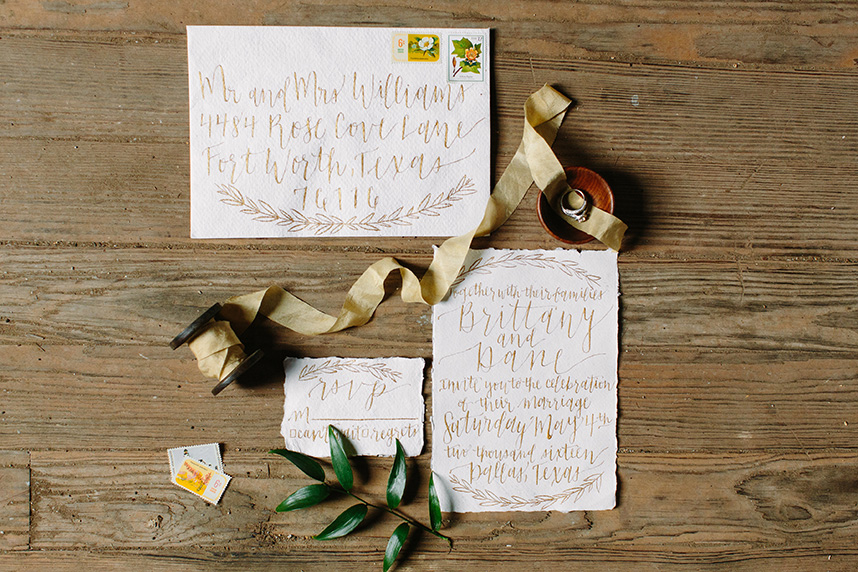 Mr and Mrs Williams
4484 Rose Cove Lane
Fort Worth, Texas
76116
together with their families
Brittany
and
Dane
invite you to the celebration
of their marriage
Saturday May 4th
two thousand sixteen
Dallas, Texas
rsvp
M
can't wait regrets